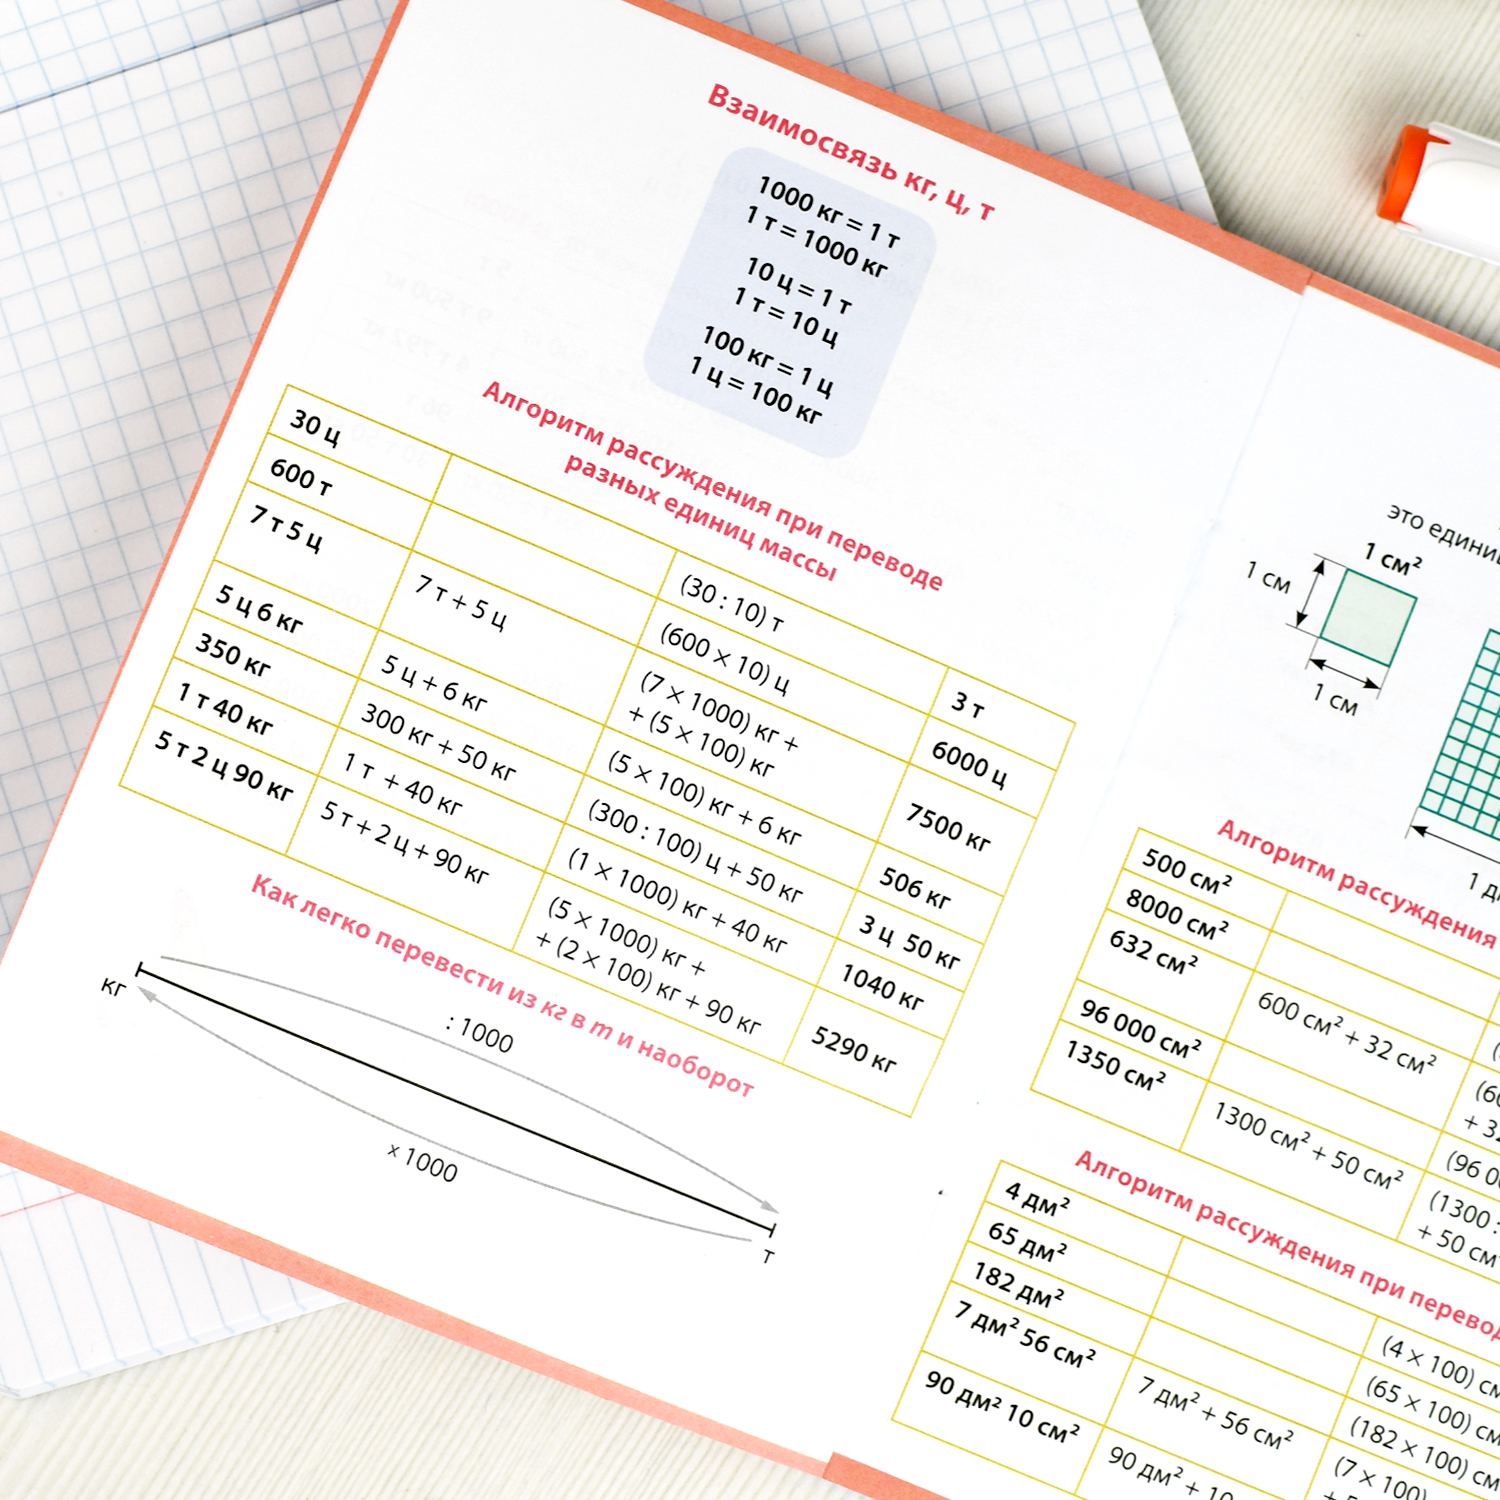 Взаимосвязь кг, ц, т
1000 кг = 1 т
1 т = 1000 кг
10 ц = 1 т
1 т = 10 ц
100 кг = 1 ц
1 ц = 100 кг
Алгоритм рассуждения при переводе
разных единиц массы
30 ц (30 : 10) т 3 т
600 т (600 × 10) ц 6000 ц
7 т 5 ц 7 т + 5 ц (7 × 1000) кг +
+ (5 × 100) кг 7500 кг
5 ц 6 кг 5 ц + 6 кг (5 × 100) кг + 6 кг 506 кг
350 кг 300 кг + 50 кг (300 : 100) ц + 50 кг 3 ц 50 кг
1 т 40 кг 1 т + 40 кг (1 × 1000) кг + 40 кг 1040 кг
5 т 2 ц 90 кг 5 т + 2 ц + 90 кг (5 × 1000) кг +
+ (2 × 100) кг + 90 кг 5290 кг
Как легко перевести из кг в т и наоборот
кг
: 1000
× 1000
т
это
1 см²
1 см
1 см
1
Алгоритм рассуждения
500 см²
8000 см²
632 см² 600 см² + 32 см²
+ 32
96 000 см² (96
1350 см² 1300 см² + 50 см² (1300 :
+ 50 см
Алгоритм рассуждения при
4 дм² (4 × 100)
65 дм² (65 × 100)
182 дм² (182 × 100)
7 дм² 56 см² 7 дм² + 56 см² (7 × 100)
90 дм² 10 см² 90 дм² + 10